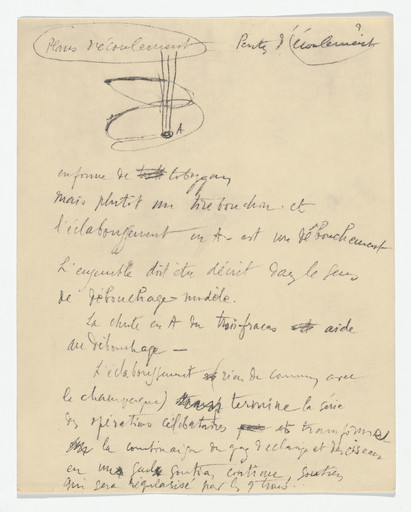 Plans d'écoulement Pentes d'écoulement?
A.
en forme de toboggan
mais plutôt un tire bouchon. et
l'éclaboussement en A. est un débouchement
L'ensemble doit être décrit dans le sens
de débouchage modèle.
La chute en A du fracas aide
au débouchage —
L'éclaboussement (rien de commun avec
le champagne) termine la série
des opérations célibataires et transforme
la combinaison du gaz d'éclairage et des ciseaux
en un seul soutien continue, soutien
qui sera régularisé par les 9 trous.